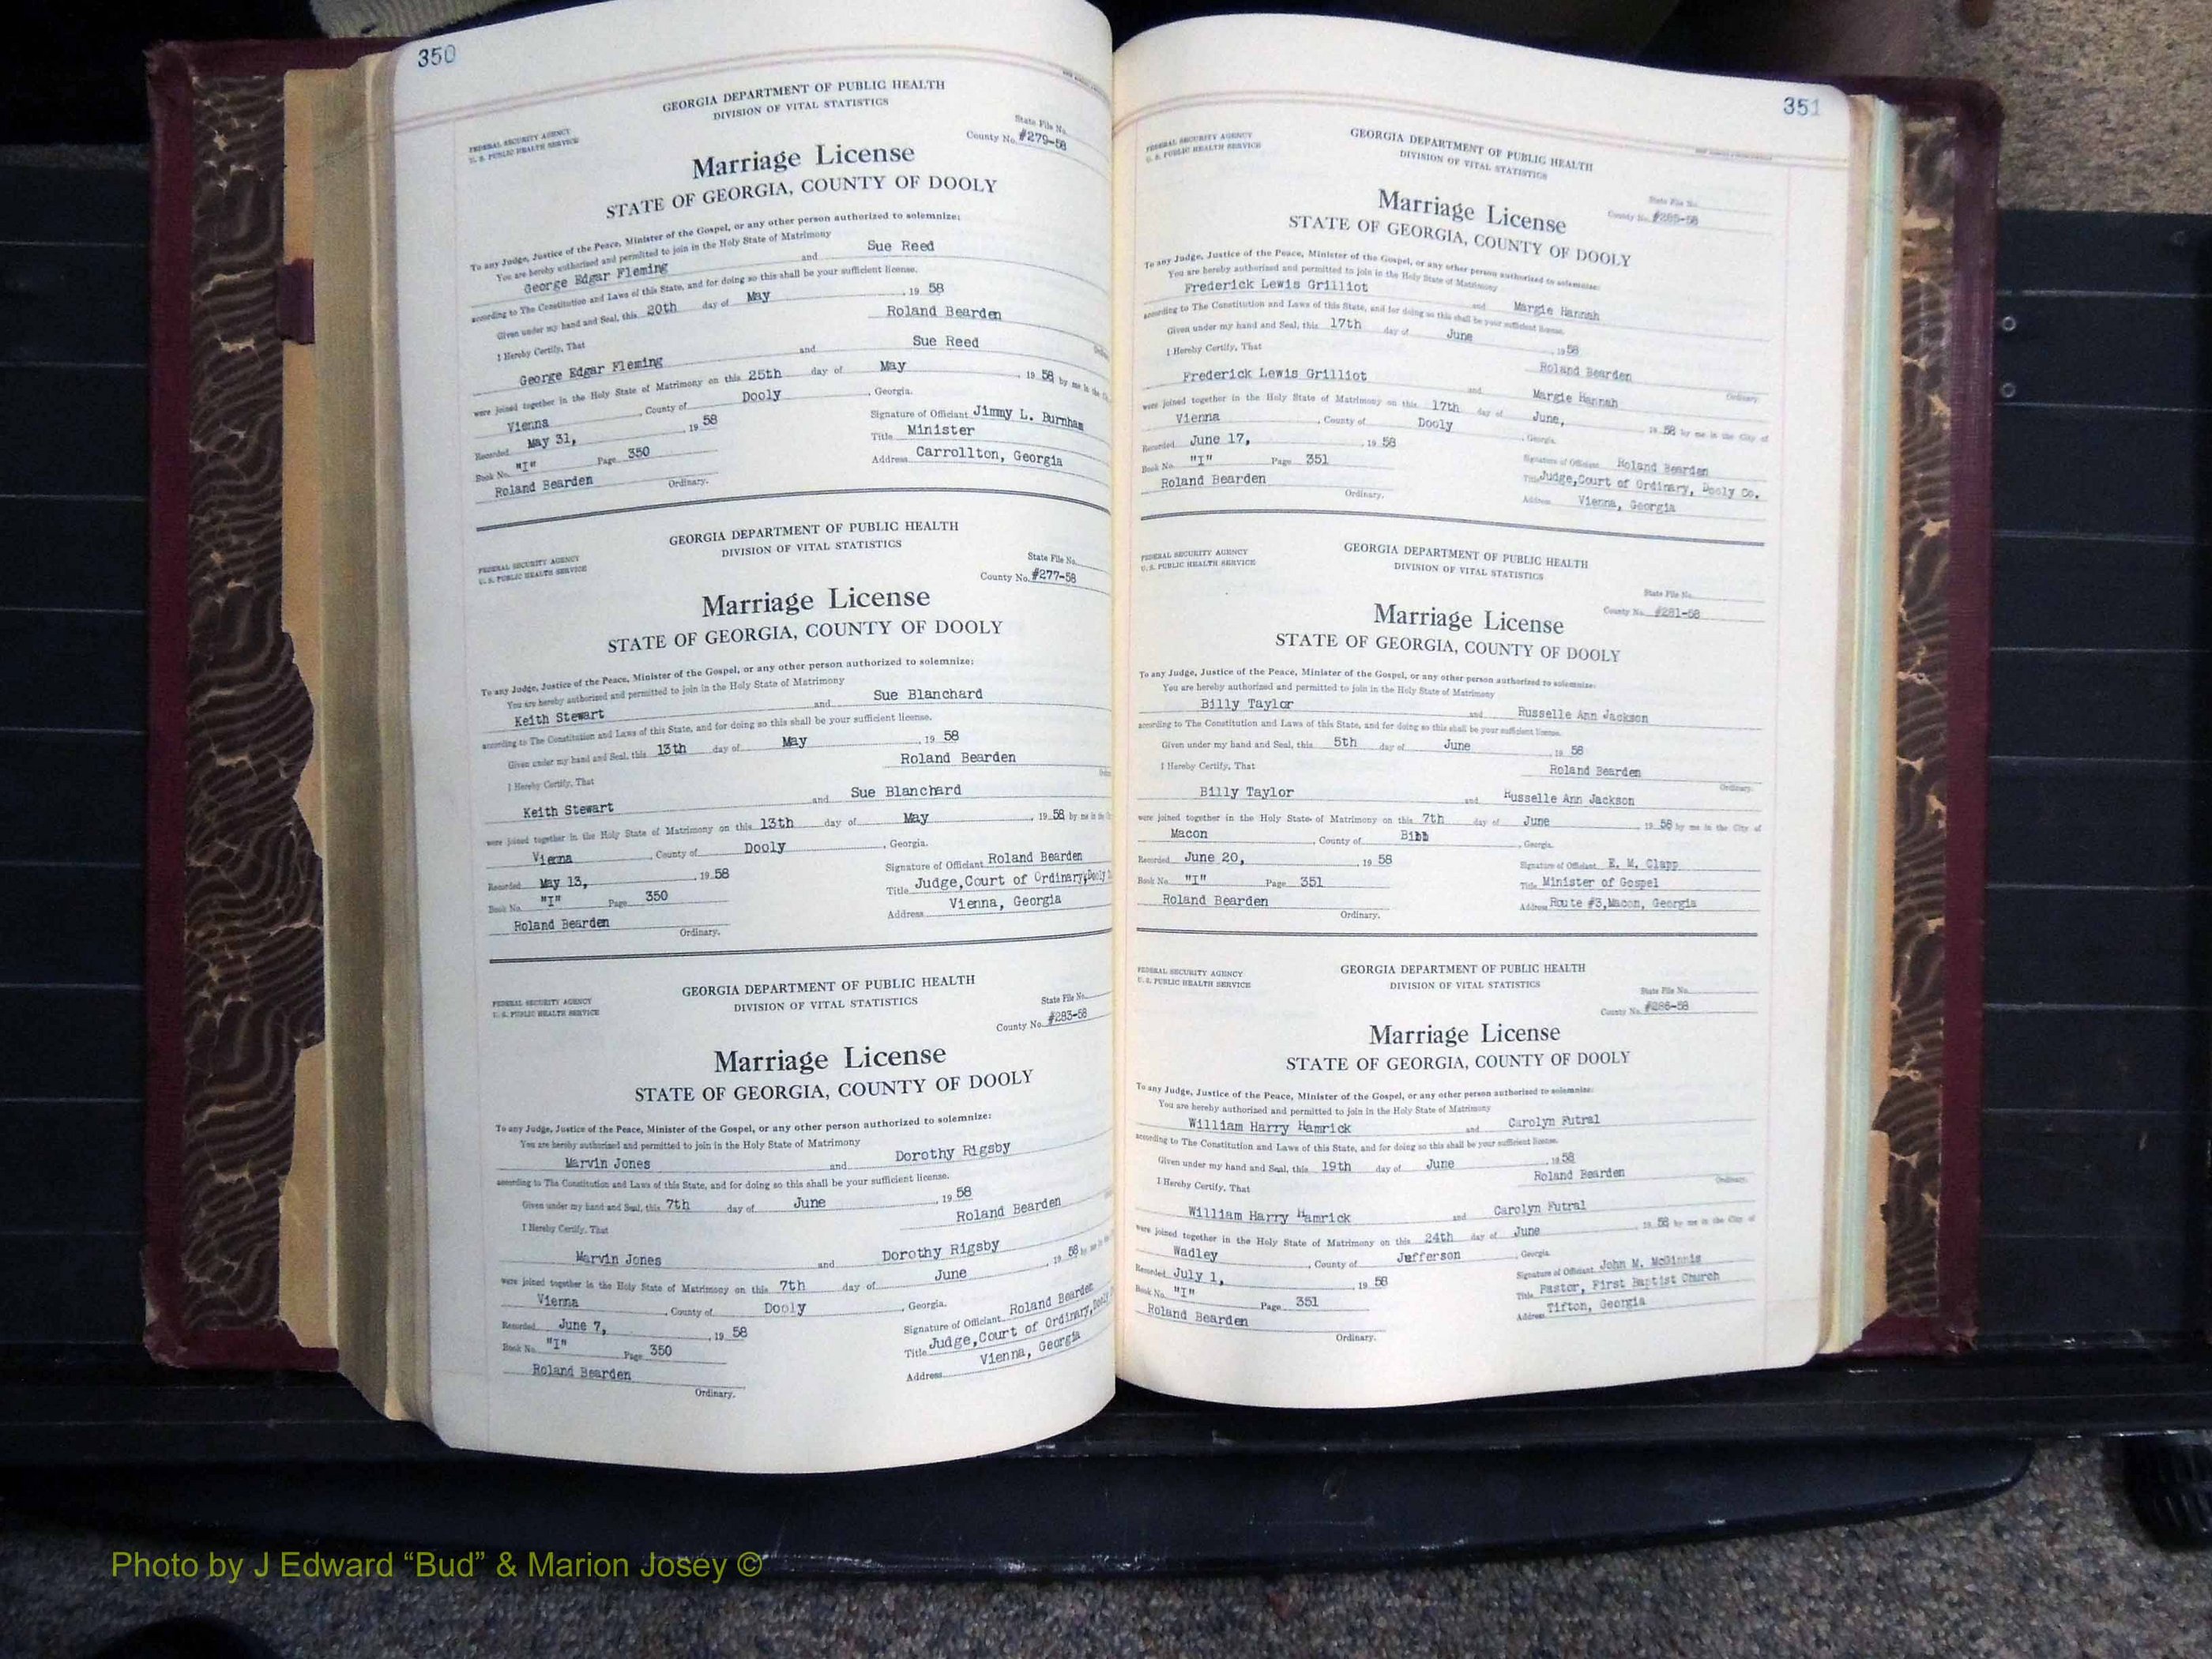 350
GEORGIA DEPARTMENT OF PUBLIC HEALTH
DIVISION OF VITAL STATISTICS
FEDERAL SECURITY AGENCY
U. S. PUBLIC HEALTH SERVICE
State File No.
County No. #279-58
Marriage License
STATE OF GEORGIA, COUNTY OF DOOLY
To any Judge, Justice of the Peace, Minister of the Gospel, or any other person authorized to solemnize:
You are hereby authorized and permitted to join in the Holy State of Matrimony
George Edgar Fleming and Sue Reed
according to The Constitution and Laws of this State, and for doing so this shall be your sufficient license.
Given under my hand and Seal, this 20th day of May 19 58
Roland Bearden
I Hereby Certify, That
George Edgar Fleming and Sue Reed
were joined together in the Holy State of Matrimony on this 25th day of May 19 58 by me in the
Vienna, County of Dooly, Georgia.
Recorded May 31, 19 58
Signature of Officiant Jimmy L. Burnham
Title Minister
Book No. "I" Page 350
Address Carrollton, Georgia
Roland Bearden
Ordinary.
GEORGIA DEPARTMENT OF PUBLIC HEALTH
DIVISION OF VITAL STATISTICS
FEDERAL SECURITY AGENCY
U. S. PUBLIC HEALTH SERVICE
State File No.
County No. #277-58
Marriage License
STATE OF GEORGIA, COUNTY OF DOOLY
To any Judge, Justice of the Peace, Minister of the Gospel, or any other person authorized to solemnize:
You are hereby authorized and permitted to join in the Holy State of Matrimony
Keith Stewart and Sue Blanchard
according to The Constitution and Laws of this State, and for doing so this shall be your sufficient license.
Given under my hand and Seal, this 13th day of May 19 58
Roland Bearden
I Hereby Certify, That
Keith Stewart and Sue Blanchard
were joined together in the Holy State of Matrimony on this 13th day of May, 19 58 by me in the
Vienna, County of Dooly, Georgia.
Recorded May 13, 19 58
Signature of Officiant Roland Bearden
Title Judge,Court of Ordinary,Dooly
Book No. "I" Page 350
Address Vienna, Georgia
Roland Bearden
Ordinary.
GEORGIA DEPARTMENT OF PUBLIC HEALTH
DIVISION OF VITAL STATISTICS
FEDERAL SECURITY AGENCY
U. S. PUBLIC HEALTH SERVICE
State File No.
County No. #283-58
Marriage License
STATE OF GEORGIA, COUNTY OF DOOLY
To any Judge, Justice of the Peace, Minister of the Gospel, or any other person authorized to solemnize:
You are hereby authorized and permitted to join in the Holy State of Matrimony
Marvin Jones and Dorothy Rigsby
according to The Constitution and Laws of this State, and for doing so this shall be your sufficient license.
Given under my hand and Seal, this 7th day of June, 19 58
Roland Bearden
I Hereby Certify, That
Marvin Jones and Dorothy Rigsby
were joined together in the Holy State of Matrimony on this 7th day of June, 19 58 by me in the
Vienna, County of Dooly, Georgia.
Recorded June 7, 19 58
Signature of Officiant Roland Bearden
Title Judge,Court of Ordinary,Dooly
Book No. "I" Page 350
Address Vienna, Georgia
Roland Bearden
Ordinary.
351
GEORGIA DEPARTMENT OF PUBLIC HEALTH
DIVISION OF VITAL STATISTICS
FEDERAL SECURITY AGENCY
U. S. PUBLIC HEALTH SERVICE
State File No.
County No.
Marriage License
STATE OF GEORGIA, COUNTY OF DOOLY
To any Judge, Justice of the Peace, Minister of the Gospel, or any other person authorized to solemnize:
You are hereby authorized and permitted to join in the Holy State of Matrimony
Frederick Lewis Grilliot and Margie Hannah
according to The Constitution and Laws of this State, and for doing so this shall be your sufficient license.
Given under my hand and Seal, this 17th day of June, 19 58
Roland Bearden
Ordinary.
I Hereby Certify, That
Frederick Lewis Grilliot and Margie Hannah
were joined together in the Holy State of Matrimony on this 17th day of June, 19 58 by me in the City of
Vienna, County of Dooly, Georgia.
Recorded June 17, 19 58
Signature of Officiant Roland Bearden
Title Judge,Court of Ordinary, Dooly Co.
Book No. "I" Page 351
Address Vienna, Georgia
Roland Bearden
Ordinary.
GEORGIA DEPARTMENT OF PUBLIC HEALTH
DIVISION OF VITAL STATISTICS
FEDERAL SECURITY AGENCY
U. S. PUBLIC HEALTH SERVICE
State File No.
County No. #281-58
Marriage License
STATE OF GEORGIA, COUNTY OF DOOLY
To any Judge, Justice of the Peace, Minister of the Gospel, or any other person authorized to solemnize:
You are hereby authorized and permitted to join in the Holy State of Matrimony
Billy Taylor and Russelle Ann Jackson
according to The Constitution and Laws of this State, and for doing so this shall be your sufficient license.
Given under my hand and Seal, this 5th day of June, 19 58
Roland Bearden
Ordinary.
I Hereby Certify, That
Billy Taylor and Russelle Ann Jackson
were joined together in the Holy State of Matrimony on this 7th day of June, 19 58 by me in the City of
Macon, County of Bibb, Georgia.
Recorded June 20, 19 58
Signature of Officiant E. M. Clapp
Title Minister of Gospel
Book No. "I" Page 351
Address Route #3,Macon, Georgia
Roland Bearden
Ordinary.
GEORGIA DEPARTMENT OF PUBLIC HEALTH
DIVISION OF VITAL STATISTICS
FEDERAL SECURITY AGENCY
U. S. PUBLIC HEALTH SERVICE
State File No.
County No. #286-58
Marriage License
STATE OF GEORGIA, COUNTY OF DOOLY
To any Judge, Justice of the Peace, Minister of the Gospel, or any other person authorized to solemnize:
You are hereby authorized and permitted to join in the Holy State of Matrimony
William Harry Hamrick and Carolyn Futral
according to The Constitution and Laws of this State, and for doing so this shall be your sufficient license.
Given under my hand and Seal, this 19th day of June, 19 58
Roland Bearden
Ordinary.
I Hereby Certify, That
William Harry Hamrick and Carolyn Futral
were joined together in the Holy State of Matrimony on this 24th day of June, 19 58 by me in the City of
Wadley, County of Jefferson, Georgia.
Recorded July 1, 19 58
Signature of Officiant John M. McGinnis
Title Pastor, First Baptist Church
Book No. "I" Page 351
Address Tifton, Georgia
Roland Bearden
Ordinary.
Photo by J Edward “Bud” & Marion Josey ©